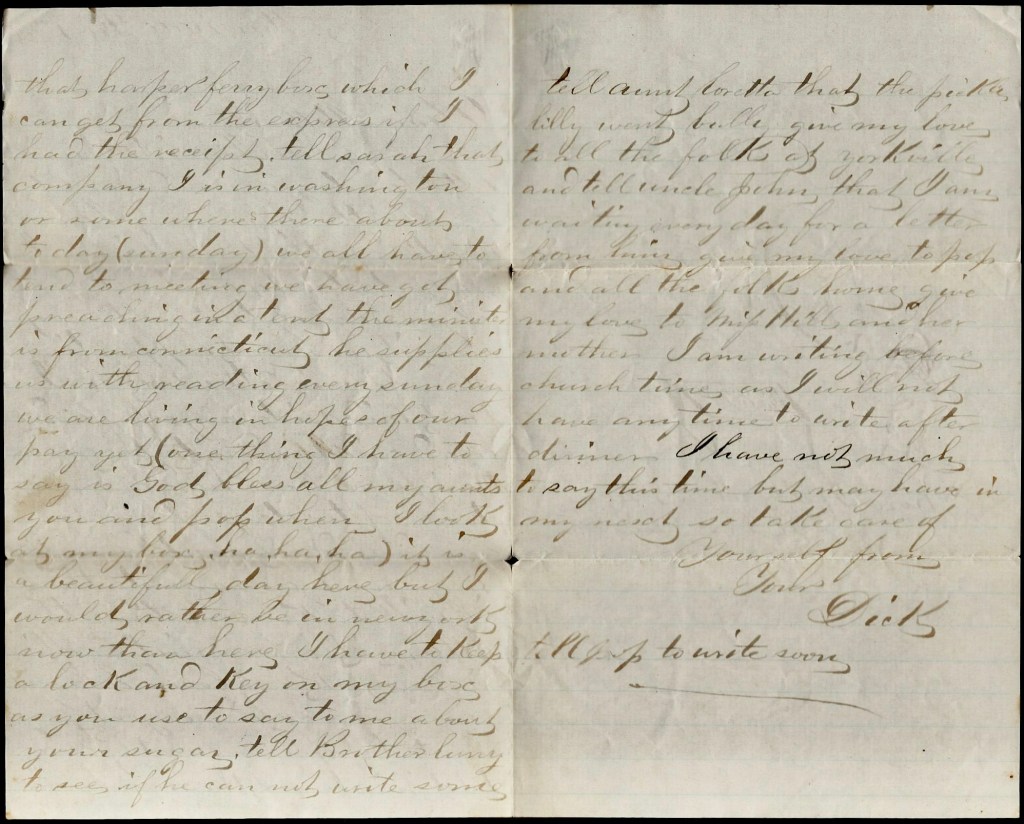 that harper ferry box which I
can get from the express if I
had the receipt. tell sarah that
company I is in washington
or some where there about
to day (sunday) we all have to
tend to meeting we have got
preaching in a tent the minits
is from connecticut he supplies
us with reading every sunday
we are living in hopes of our
pay yet (one thing I have to
say is God bless all my aunts
you and pop when I look
at my box, ha, ha, ha) it is
a beautifull day here but I
would rather be in new york
now than here I have to keep
a lock and Key on my box
as you use to say to me about
your sugar, tell Brother
to see if he can not write some
tell aunt loretta that the picka
lilly went bully give my love
to all the folk at yorkville
and tell uncle John that I am
waiting every day for a letter
from him give my love to pop
and all the folk home give
my love to Miss Hill and her
mother I am writing before
church time as I will not
have any time to write after
dinner I have not much
to say this time but may have in
my next so take care of
Yourself from
Your
Dick
tell pop to write soon